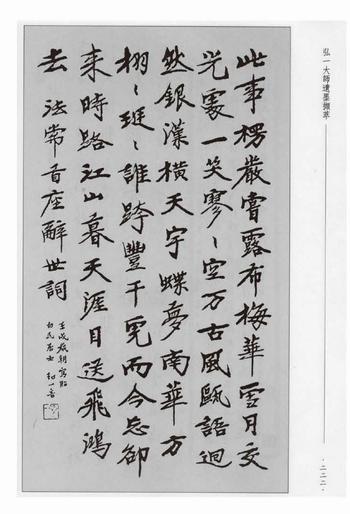 弘一大師遺墨擷萃
·二二二·
此事楞嚴嘗露布梅華雪月交
光處一笑寥〻空万古風甌語迥
然銀漢橫天宇蝶夢南華方
栩〻珽〻誰跨豐干虎而今忘卻
来時路江山暮天涯目送飛鴻
去 法常首座辭世詞
壬戌歲朝寫貽
白民居士 弘一音